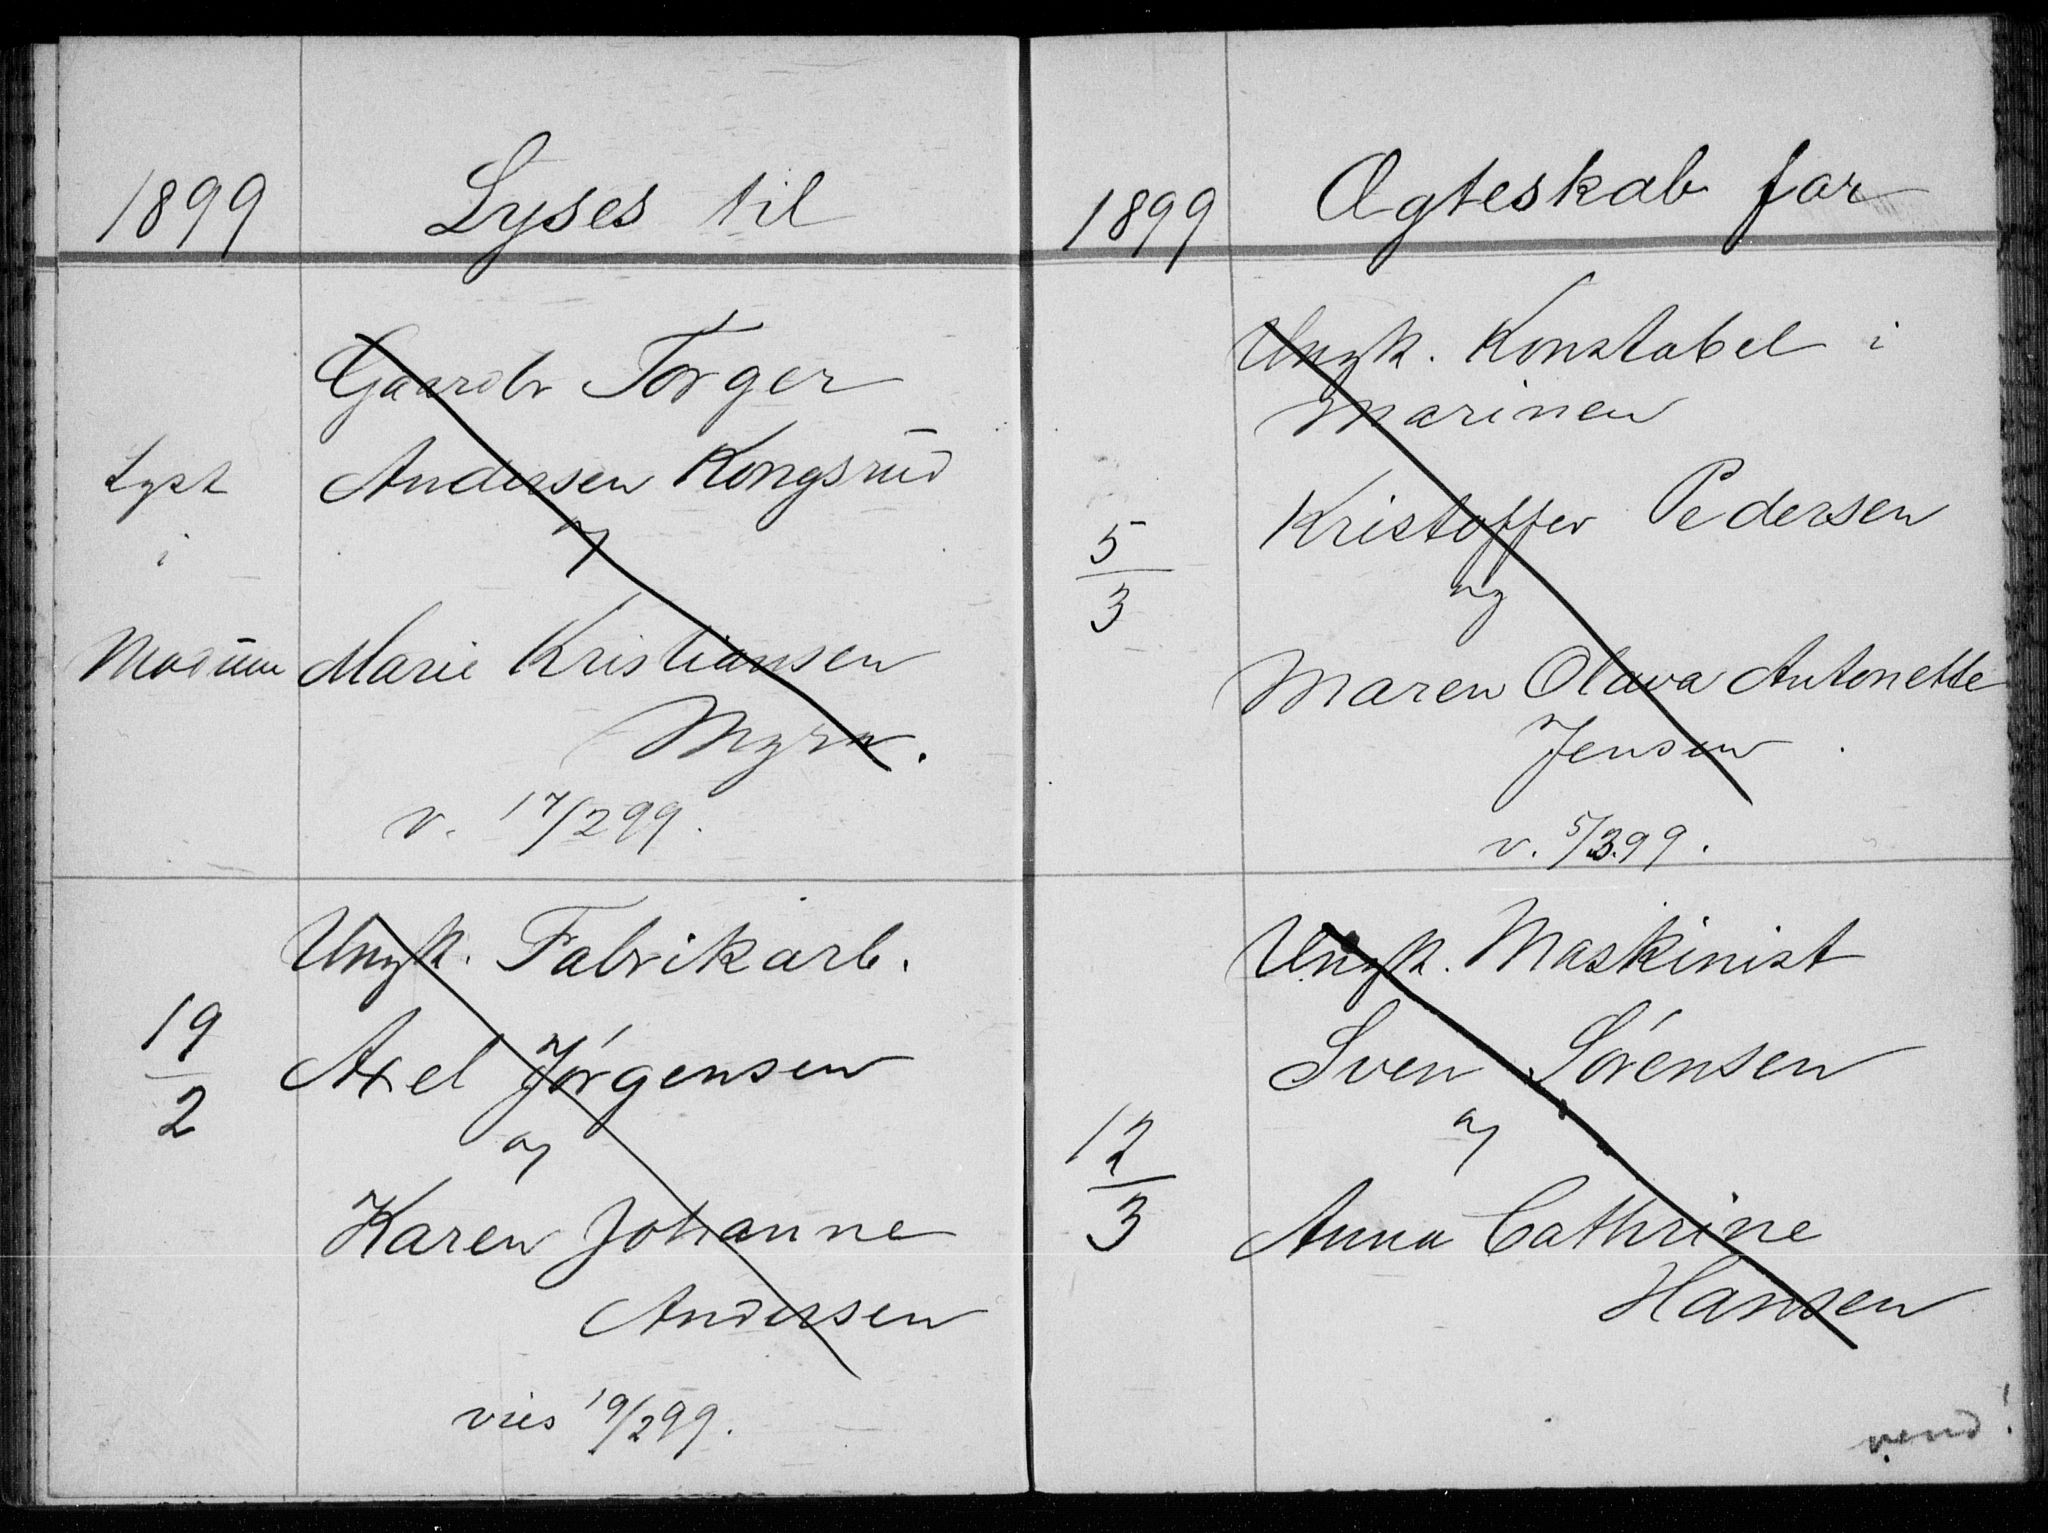 1899 Lyses til
Gaardbr Torger
Lyst Andersen Kongsrud
i og
Modum Marie Kristiansen
Myra.
v. 17/2 99.
Ungk. Fabrikarb.
19/2 Axel Jørgensen
og
Karen Johanne
Andersen
vies 19/2 99.
1899 Ægteskab for
Ungk. Konstabel i
Marinen
5/3 Kristoffer Pedersen
og
Maren Olava Antonette
Jensen
v. 5/3.99.
Ungk. Maskinist
Sven Sørensen
12/3 og
Anna Cathrine
Hansen
vend!